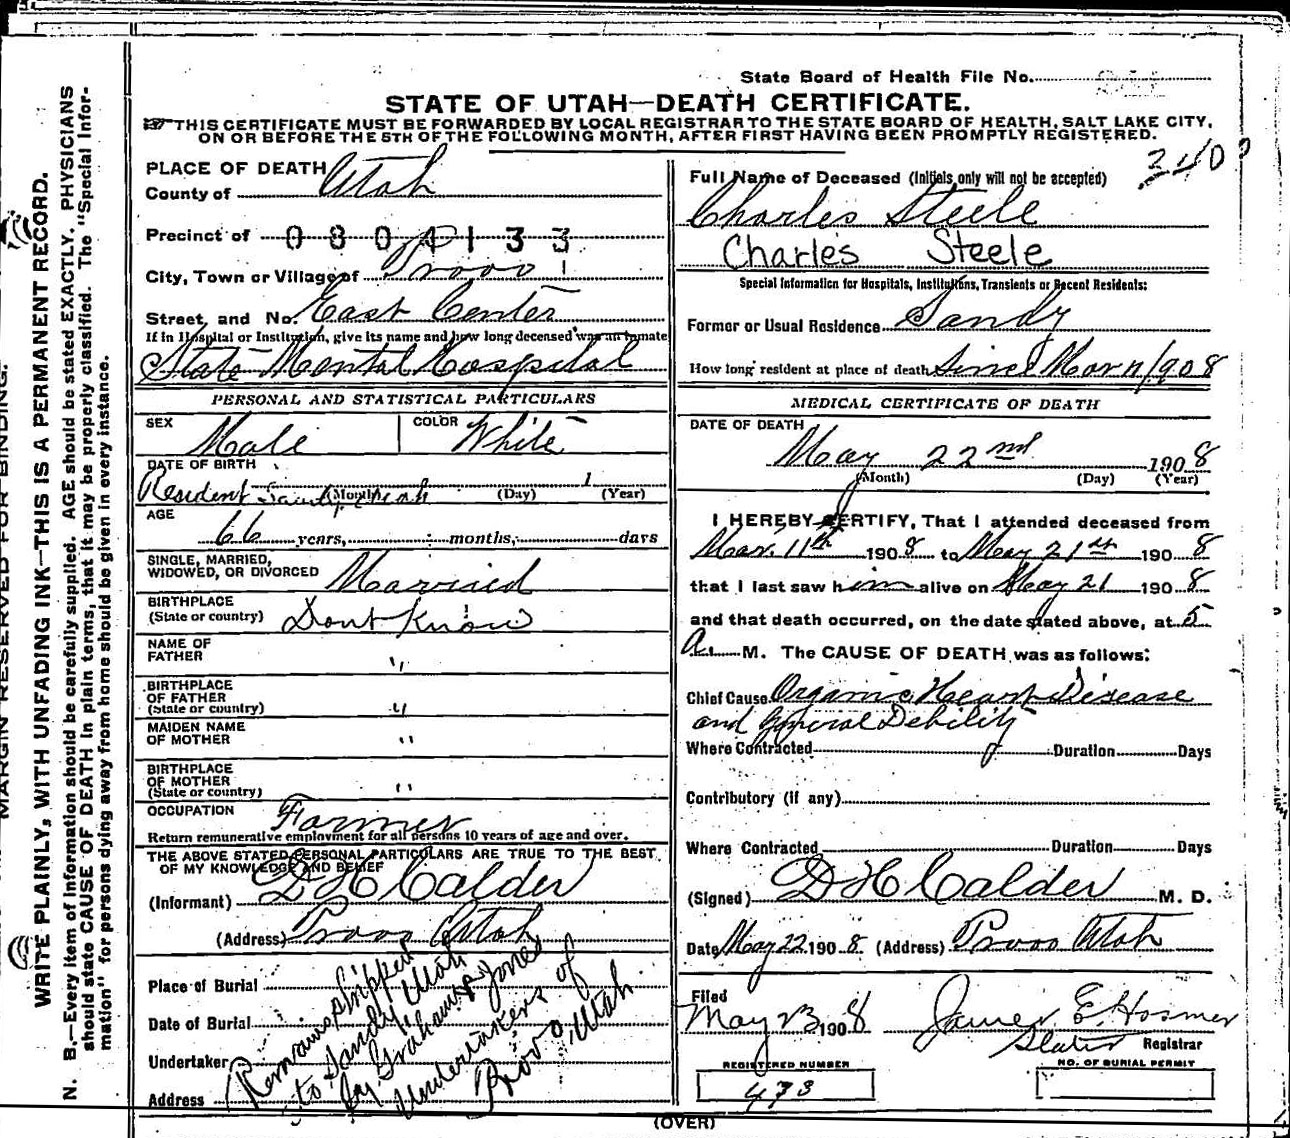 State Board of Health File No.
STATE OF UTAH—DEATH CERTIFICATE.
THIS CERTIFICATE MUST BE FORWARDED BY LOCAL REGISTRAR TO THE STATE BOARD OF HEALTH, SALT LAKE CITY,
ON OR BEFORE THE 5TH OF THE FOLLOWING MONTH, AFTER FIRST HAVING BEEN PROMPTLY REGISTERED.
MARGIN RESERVED FOR BINDING.
WRITE PLAINLY, WITH UNFADING INK—THIS IS A PERMANENT RECORD.
N. B.—Every item of information should be carefully supplied. AGE should be stated EXACTLY. PHYSICIANS
should state CAUSE OF DEATH in plain terms, that it may be properly classified. The "Special Infor-
mation" for persons dying away from home should be given in every instance.
PLACE OF DEATH
County of Utah
Precinct of 0804133
City, Town or Village of Provo
Street, and No. East Center
If in Hospital or Institution, give its name and how long deceased was an inmate
State Mental Hospital
PERSONAL AND STATISTICAL PARTICULARS
SEX Male COLOR White
DATE OF BIRTH
Resident Sandy Utah (Month) (Day) 1 (Year)
AGE
66 years, months, days
SINGLE, MARRIED,
WIDOWED, OR DIVORCED Married
BIRTHPLACE
(State or country) Dont Know
NAME OF
FATHER "
BIRTHPLACE
OF FATHER
(State or country) "
MAIDEN NAME
OF MOTHER "
BIRTHPLACE
OF MOTHER
(State or country) "
OCCUPATION Farmer
Return remunerative employment for all persons 10 years of age and over.
THE ABOVE STATED PERSONAL PARTICULARS ARE TRUE TO THE BEST
OF MY KNOWLEDGE AND BELIEF
(Informant) D H Calder
(Address) Provo Utah
Place of Burial
Date of Burial
Undertaker
Address
Remains shipped
to Sandy Utah
by Graham & Jones
Undertakers of
Provo Utah
3400
Full Name of Deceased (Initials only will not be accepted)
Charles Steele
Charles Steele
Special Information for Hospitals, Institutions, Transients or Recent Residents:
Former or Usual Residence Sandy
How long resident at place of death Since Mar 11/908
MEDICAL CERTIFICATE OF DEATH
DATE OF DEATH
May 22nd 1908
(Month) (Day) (Year)
I HEREBY CERTIFY, That I attended deceased from
Mar. 11th 1908 to May 21st 1908
that I last saw him alive on May 21 1908
and that death occurred, on the date stated above, at 5
A. M. The CAUSE OF DEATH was as follows:
Chief Cause Organic Heart Disease
and General Debility
Where Contracted Duration Days
Contributory (if any)
Where Contracted Duration Days
(Signed) D H Calder M. D.
Date May 22 1908 (Address) Provo Utah
Filed
May 23 1908 James E. Hosmer
Registrar
REGISTERED NUMBER
473
NO. OF BURIAL PERMIT
(OVER)